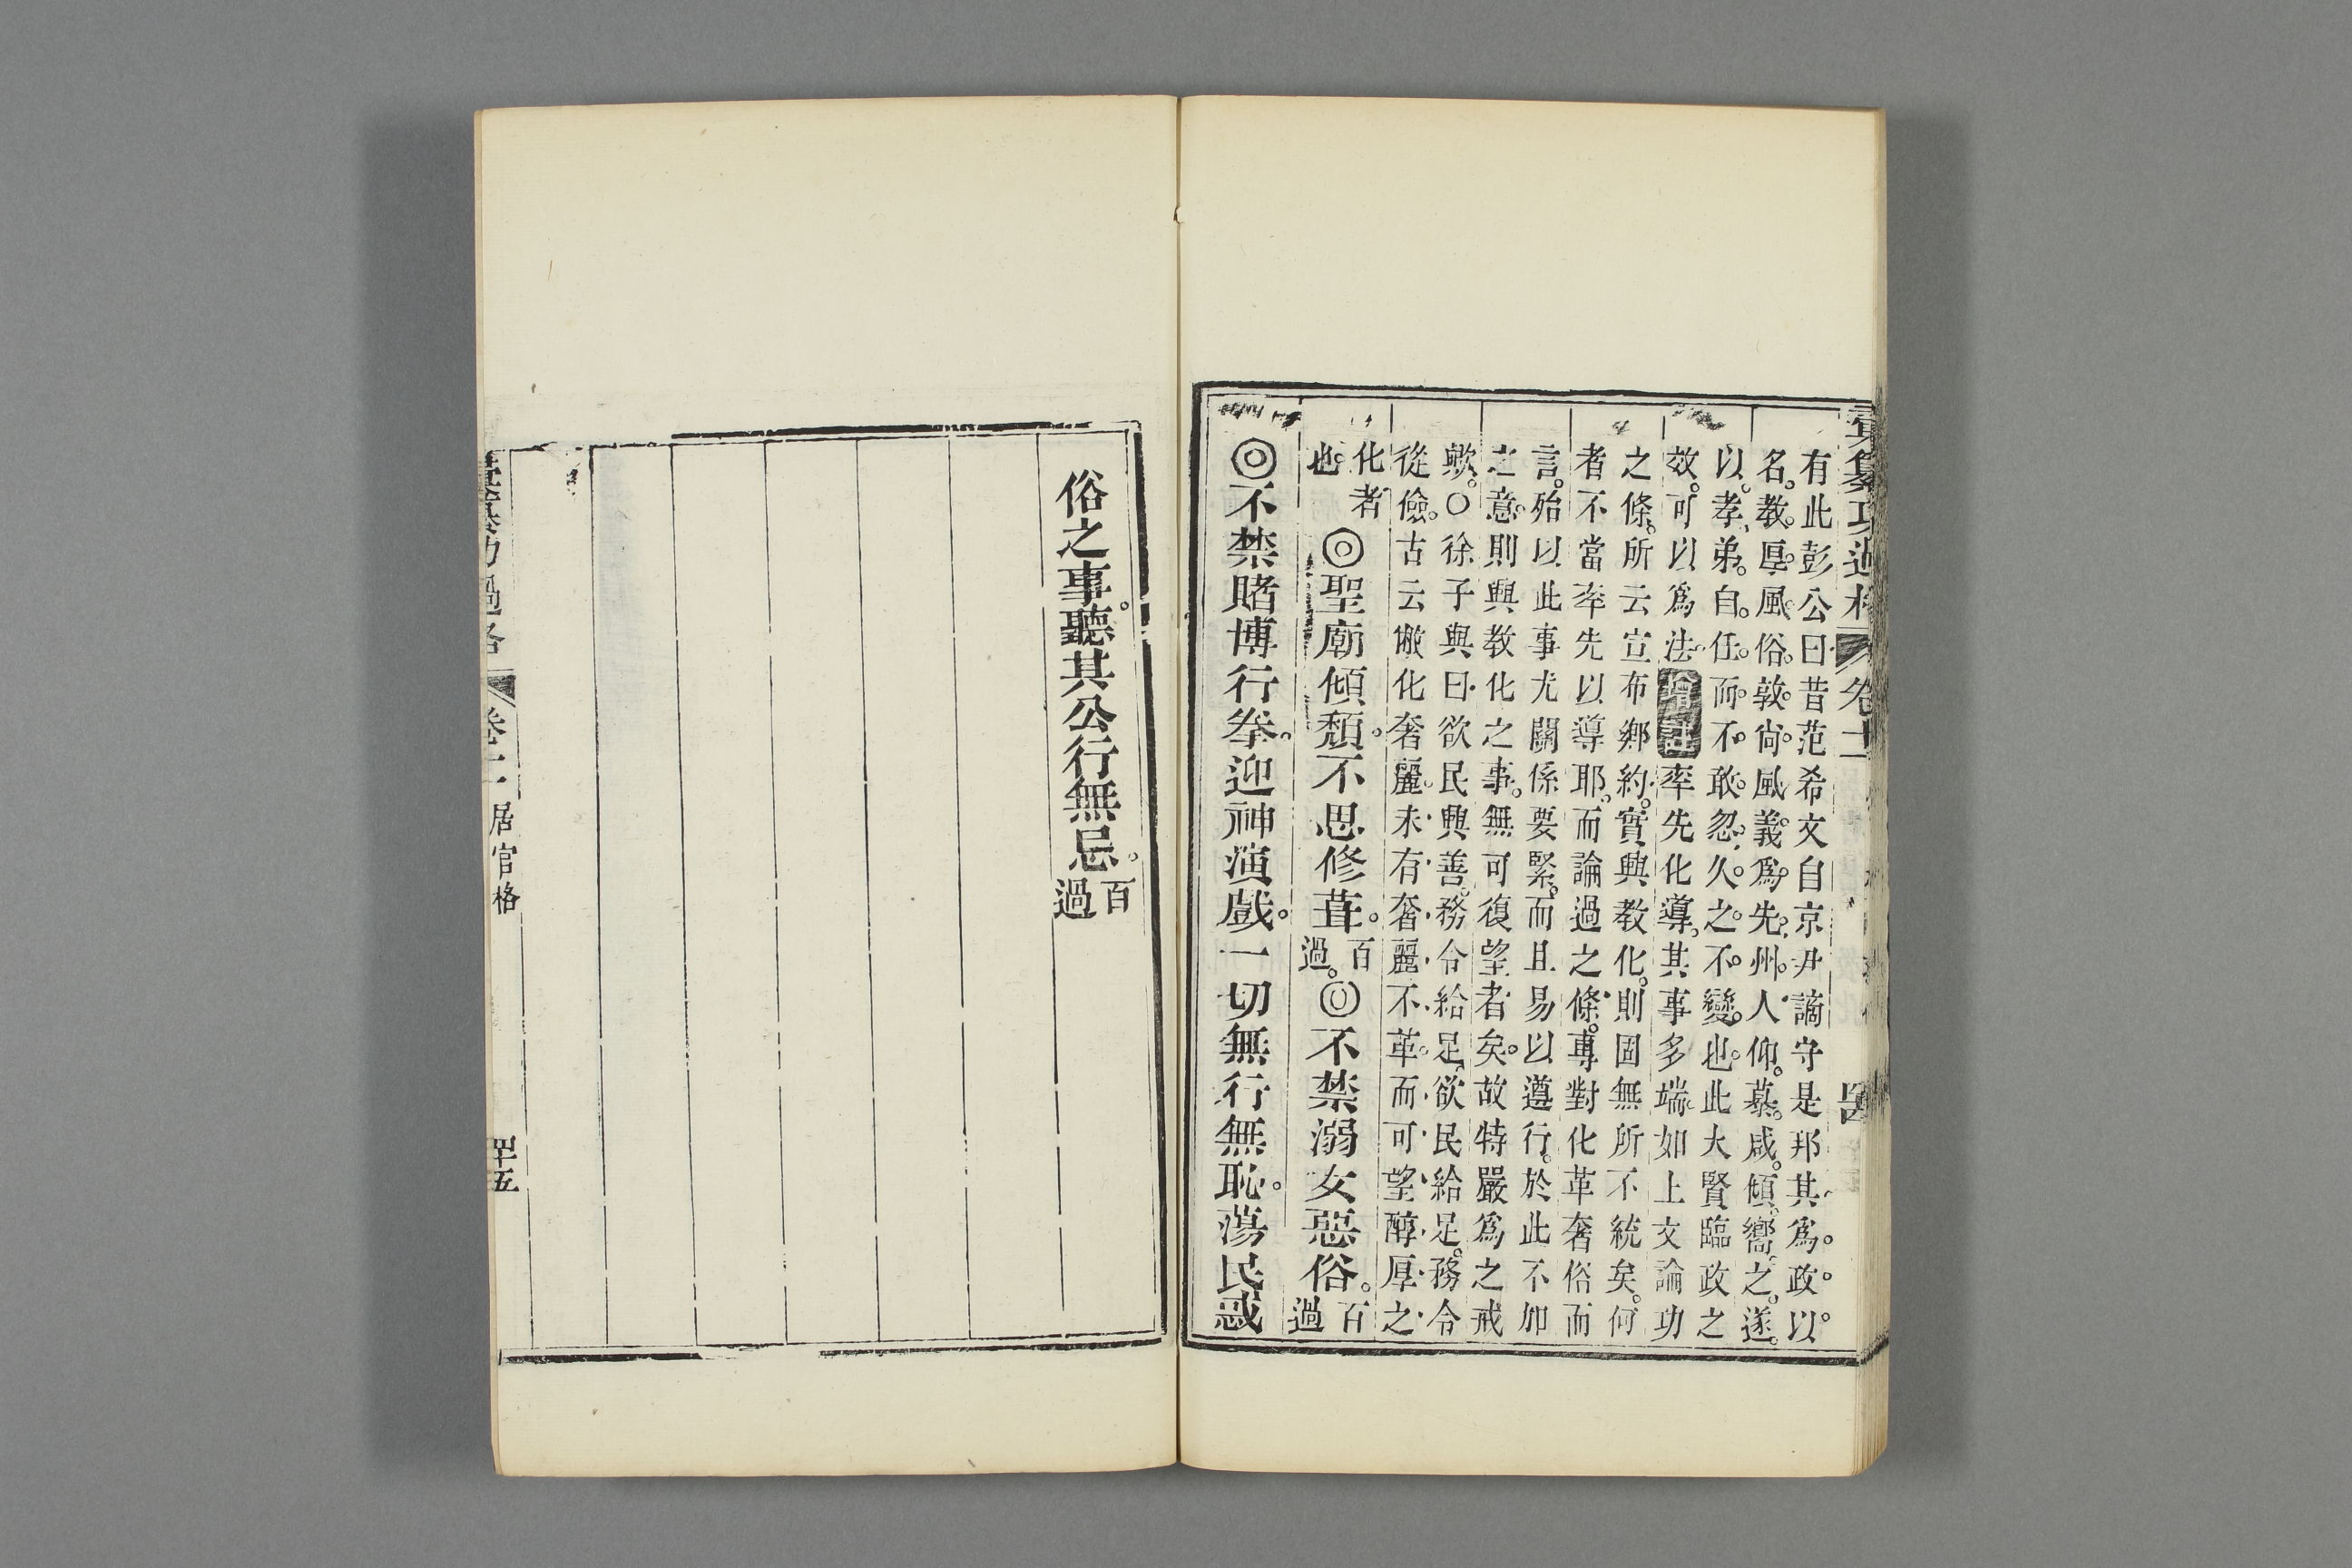 彙纂功過格 卷十二
有此彭公曰昔范希文自京尹謫守是邦其爲。政。以。
名。教。厚。風。俗。敦。尚。風義。爲。先。州。人仰。慕。咸。傾。嚮。之。遂。
以。孝、弟。自。任。而。不。敢。忽。久。之。不。變。也。此大賢臨政之
效。可以爲法。增註率先化導。其事多端。如上文論功
之條。所云宣布鄉約。實興教化。則固無所不統矣。何
者不當率先以導耶。而論過之條。專對化革奢俗而
言。殆以此事尤關係要緊。而且易以遵行。於此不加
之意。則興教化之事。無可復望者矣。故特嚴爲之戒
歟。○徐子與曰欲民興善。務令給足。欲民給足。務令
從儉。古云儆化奢麗。未有奢麗不革。而可望醇厚之
化者
也。◎聖廟傾頽。不思修葺。百過。◎不禁溺女惡俗。百過
◎不禁賭博行拳。迎神演戲。一切無行無恥。蕩民惑
俗之事。聽其公行無忌。百過
彙纂功過格 卷十二 居官格 四十五